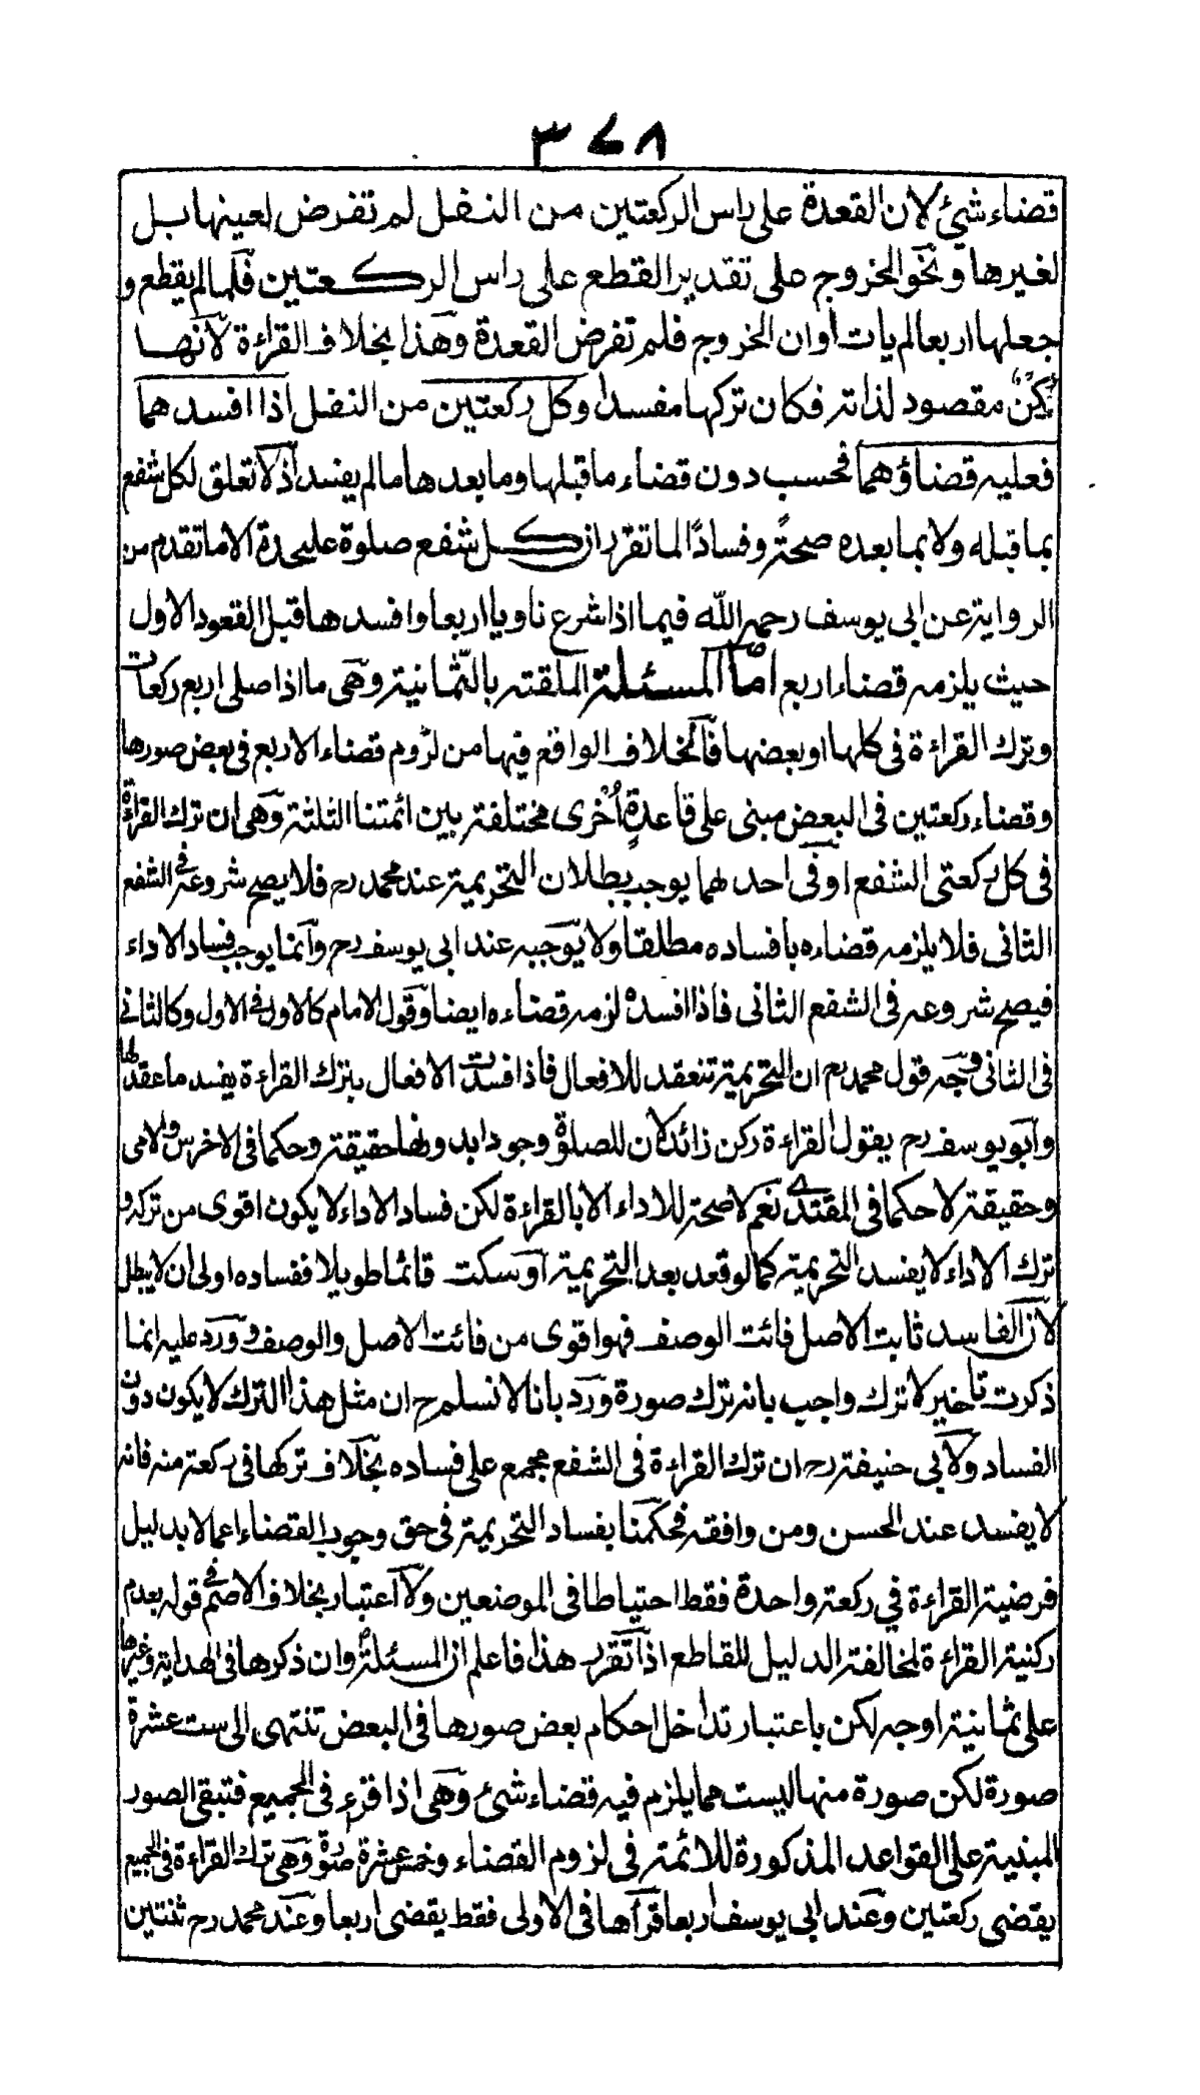 ٣٧٨
قضاء شئ لان القعدة على راس الركعتين من النفل لم تفرض لعينها بل
لغيرها وهو الخروج على تقدير القطع على راس الركعتين فلما لم يقطع و
جعلها اربعا لم يات اوان الخروج فلم تفرض القعدة وهذا بخلاف القراءة لانها
ركن مقصود لذاته فكان تركها مفسدا وكل ركعتين من النفل اذا افسدهما
فعليه قضاؤهما فحسب دون قضاء ما قبلها وما بعدها ما لم يفسد اذ لا تعلق لكل شفع
بما قبله ولا بما بعده صحةً وفسادًا لما تقرر ان كل شفع صلوة عليحدة الا ما تقدم من
الرواية عن ابي يوسف رحمه الله فيما اذا شرع ناويا اربعا وافسدها قبل القعود الاول
حيث يلزمه قضاء اربع امّا المسئلة الملقبة بالثمانية وهى ما اذا صلى اربع ركعات
وترك القراءة فى كلها او بعضها فالخلاف الواقع فيها من لزوم قضاء الاربع فى بعض صورها
وقضاء ركعتين فى البعض مبنى على قاعدةٍ اُخرى مختلفة بين ائمتنا الثلثة وهى ان ترك القراءة
فى كل ركعتى الشفع او فى احدهما يوجب بطلان التحريمة عند محمد رح فلا يصح شروعه فى الشفع
الثانى فلا يلزمه قضاءه بافساده مطلقا ولا يوجبه عند ابى يوسف رح وانما يوجب فساد الاداء
فيصح شروعه فى الشفع الثانى فاذا افسده لزمه قضاءه ايضا وقول الامام كالاول فى الاول وكالثانى
فى الثانى وجه قول محمد رح ان التحريمة تنعقد للافعال فاذا فسدت الافعال بترك القراءة يفسد ما عقد لها
وابو يوسف رح يقول القراءة ركن زائد لان للصلوة وجودا بدونها حقيقة وحكما فى الاخرس والامى
وحقيقة لا حكما فى المقتدى نعم لا صحة للاداء الا بالقراءة لكن فساد الاداء لا يكون اقوى من تركه و
ترك الاداء لا يفسد التحريمة كما لو قعد بعد التحريمة او سكت قائما طويلا ففساده اولى ان لا يبطل
لان الفاسد ثابت الاصل فائت الوصف فهو اقوى من فائت الاصل والوصف وورد عليه انما
ذكرت تأخير لا ترك واجيب بانه ترك صورة ورد بانا لا نسلم ح ان مثل هذا الترك لا يكون دون
الفساد ولابى حنيفة رح ان ترك القراءة فى الشفع مجمع على فساده بخلاف تركها فى ركعة منه فانه
لا يفسد عند الحسن ومن وافقه فحكمنا بفساد التحريمة فى حق وجوب القضاء اعمالا بدليل
فرضية القراءة في ركعة واحدة فقط احتياطا فى الموضعين ولا اعتبار بخلاف الاصم فى قوله بعدم
ركنية القراءة لمخالفة الدليل القاطع اذا تقرر هذا فاعلم ان المسئلة وان ذكرها فى الهداية وغيرها
على ثمانية اوجه لكن باعتبار تداخل احكام بعض صورها فى البعض تنتهى الى ست عشرة
صورة لكن صورة منها ليست مما يلزم فيه قضاء شئ وهى اذا قرء فى الجميع فتبقى الصور
المبنية على القواعد المذكورة للائمة فى لزوم القضاء وخمس عشرة صورة وهى ترك القراءة فى الجميع
يقضى ركعتين وعند ابى يوسف اربعا قرأها فى الاولى فقط يقضى اربعا وعند محمد رح ثنتين